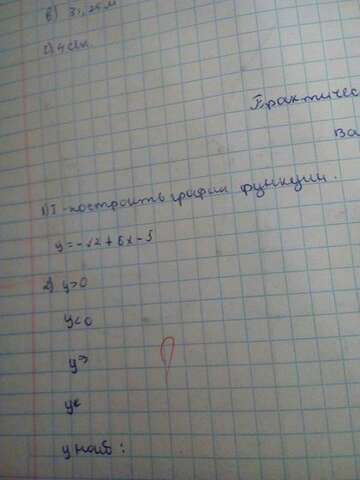 в) 31,25 м
Практичес
Ва
1) I - построить график функции.
y = -x2 + 6x - 5
2) y>0
y<0
y>
y<
y наиб: